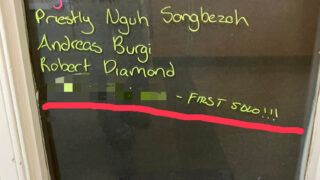 Priestly Nguh Songbezoh
Andreas Burgi
Robert Diamond
- FIRST SOLO!!!